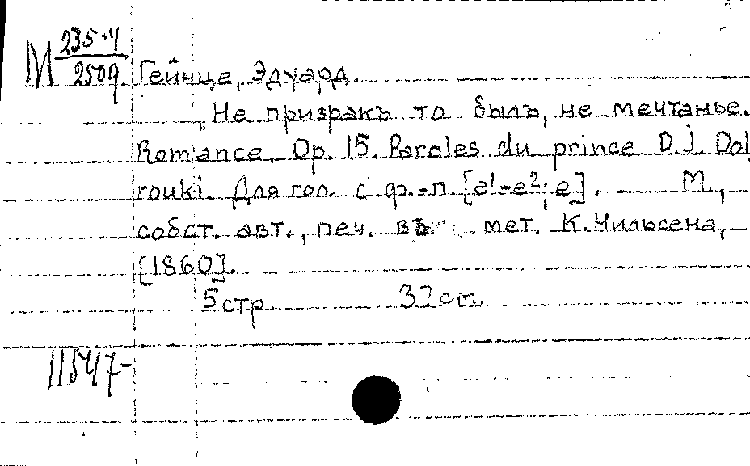 М 235-4
2509
Гейнце, Эдуард.
Не призракъ то былъ, не мечтанье.
Romance. Op. 15. Paroles du prince D.J. Dol
rouki. Для гол. с ф.-п. [e¹-e²; e]. М.,
собст. авт., печ. въ мет. К. Нильсена,
[1860].
5 стр 32 cm
11547-